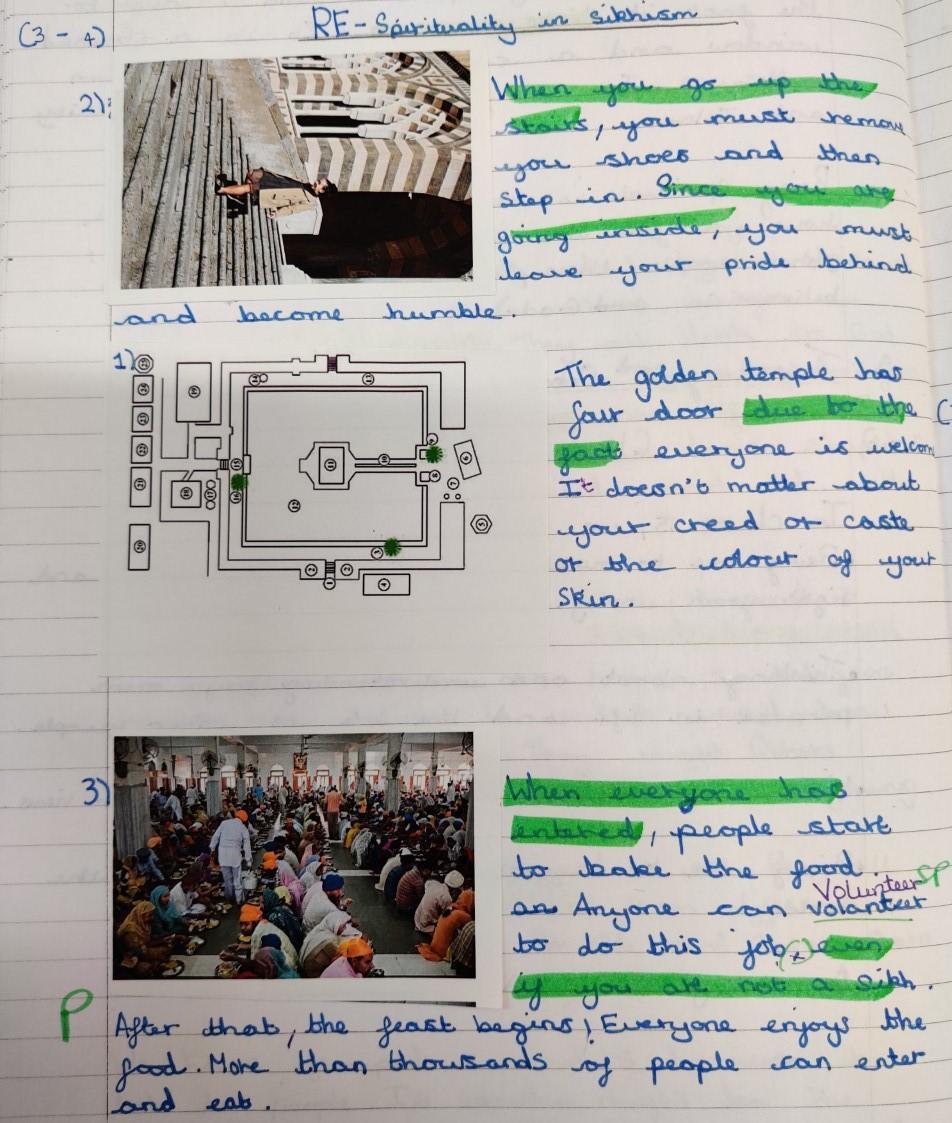 RE - Spirituality in sikhism
(3 - 4)
2)
When you go up the
stairs, you must remove
you shoes and then
step in. Since you are
going inside, you must
leave your pride behind
and become humble.
1)
The golden temple has
four door due to the
fact everyone is welcom
It doesn't matter about
your creed or caste
or the colour of your
skin.
3)
When everyone has
entered, people start
to bake the food.
Volunteer SP
an Anyone can volanteer
to do this job, even
if you are not a sikh.
P
After that, the feast begins! Everyone enjoys the
food. More than thousands of people can enter
and eat.